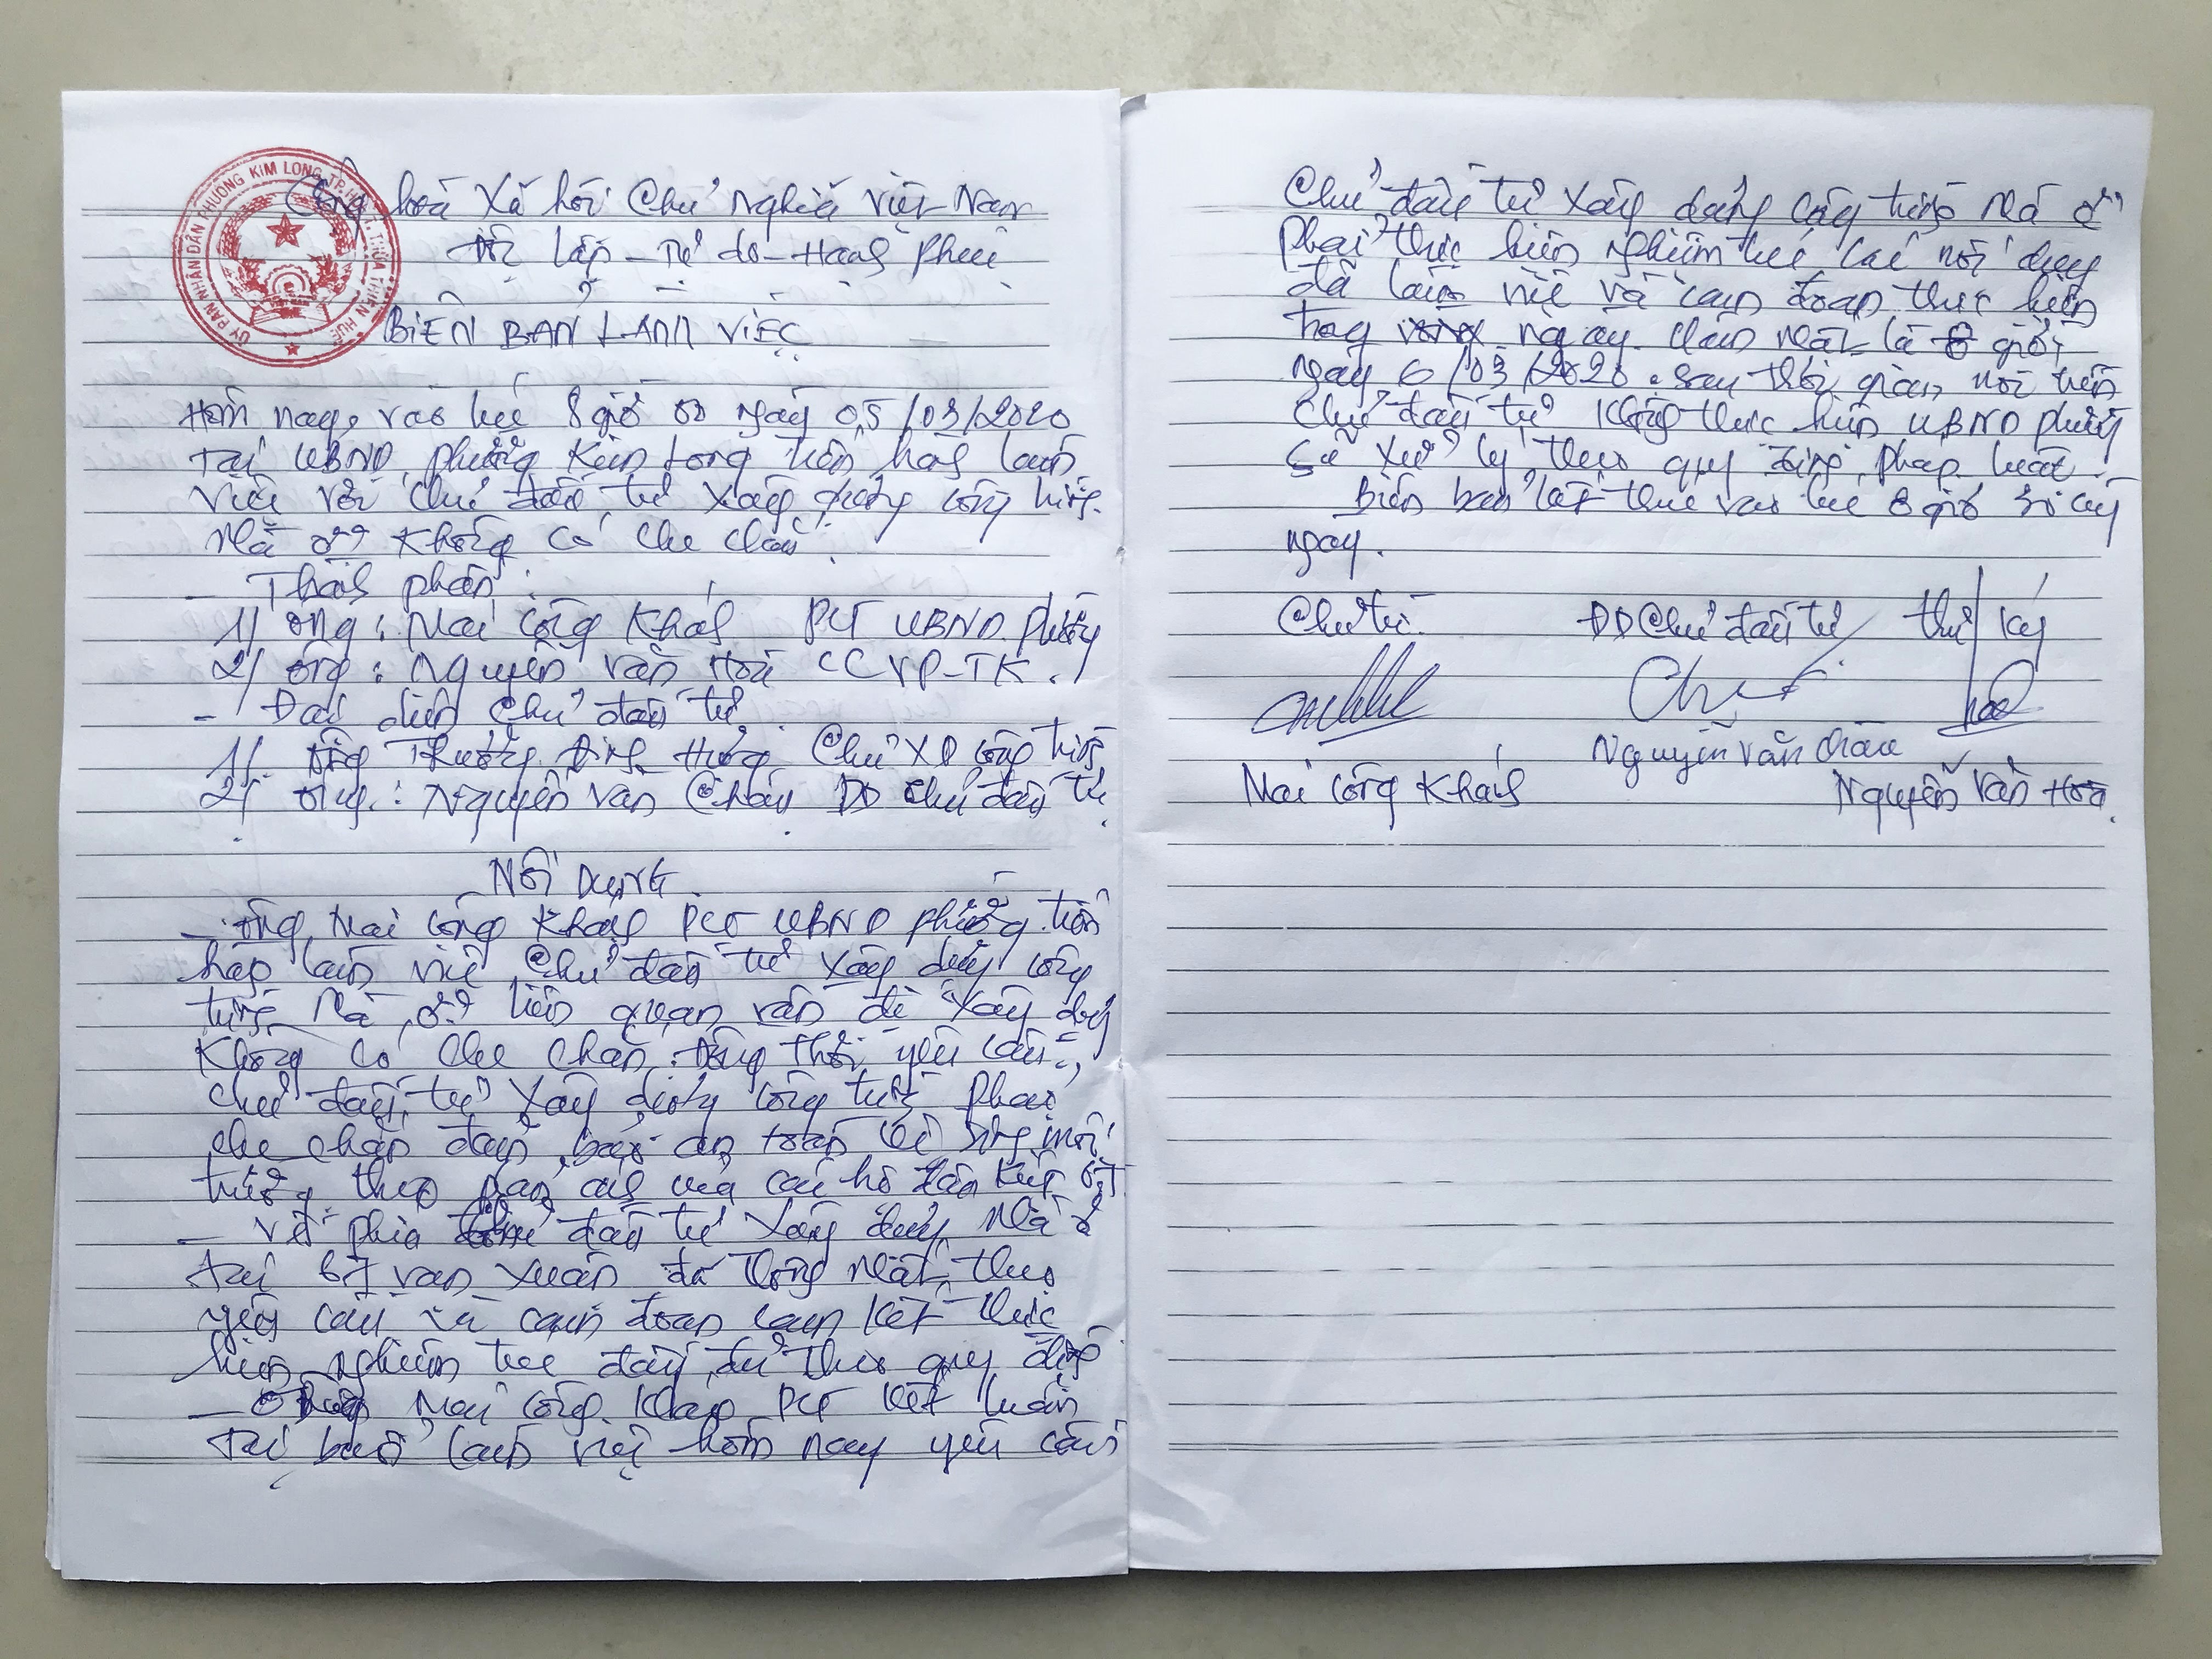 ỦY BAN NHÂN DÂN PHƯỜNG KIM LONG TP. HUẾ T. THỪA THIÊN HUẾ
VIỆT NAM
Cộng hoà Xã hội Chủ Nghĩa Việt Nam
Độc lập - Tự do - Hạnh phúc
BIÊN BẢN LÀM VIỆC
Hôm nay, vào lúc 8 giờ 00 ngày 05/03/2020
Tại UBND phường Kim Long tiến hành làm
việc với chủ đầu tư xây dựng công trình
Nhà ở không có che chắn.
- Thành phần:
1/ Ông: Mai Công Khánh PCT UBND phường
2/ Ông: Nguyễn Văn Hoà CCVP-TK.
- Đại diện chủ đầu tư
1/. Ông Trương Đình Hương Chủ XD công trình
2/ Ông: Nguyễn Văn Châu DD chủ đầu tư.
NỘI DUNG
- Ông Mai Công Khánh PCT UBND phường tiến
hành làm việc chủ đầu tư xây dựng công
trình Nhà ở liên quan vấn đề xây dựng
không có che chắn. Đồng thời yêu cầu
chủ đầu tư xây dựng công trình phải
che chắn đảm bảo an toàn vệ sinh môi
trường theo phản ánh của các hộ dân
- Về phía chủ đầu tư xây dựng Nhà ở
tại 67 Vạn Xuân đã thống nhất theo
yêu cầu và cam đoan cam kết thực
hiện nghiêm túc đầy đủ theo quy định
- Ông Mai Công Khánh PCT kết luận
Tại buổi làm việc hôm nay yêu cầu
Chủ đầu tư xây dựng công trình Nhà ở
phải thực hiện nghiêm túc các nội dung
đã làm việc và cam đoan thực hiện
trong ngày. Chậm nhất là 8 giờ
ngày 6/03/2020. Sau thời gian nói trên
chủ đầu tư không thực hiện UBND phường
sẽ xử lý theo quy định pháp luật.
Biên bản kết thúc vào lúc 8 giờ 30 cùng
ngày.
Chủ trì ĐD Chủ đầu tư Thư ký
Nguyễn Văn Châu
Mai Công Khánh Nguyễn Văn Hoà.